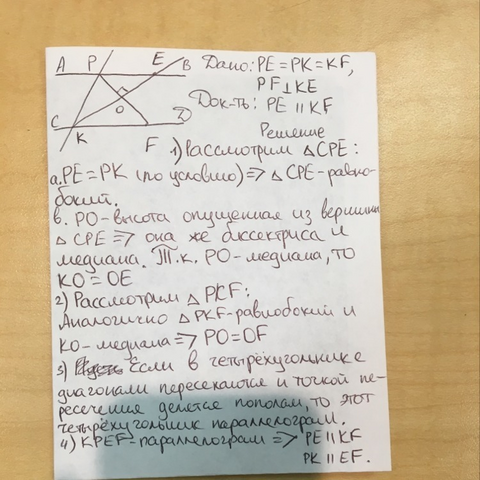 A P E B Дано: PE = PK = KF,
PF⊥KE
Док-ть: PE || KF
O
C K F D
Решение
1) Рассмотрим △CPE:
а. PE = PK (по условию) => △CPE-равно-
бокий.
в. PO-высота опущенная из вершины
△CPE => она же биссектриса и
медиана. Т.к. PO-медиана, то
KO = OE
2) Рассмотрим △PKF:
Аналогично △PKF-равнобокий и
KO-медиана => PO = OF
3) Если в четырёхугольнике
диагонали пересекаются и точкой пе-
ресечения делятся пополам, то этот
четырёхугольник параллелограм.
4) KPEF-параллелограм => PE || KF
PK || EF.